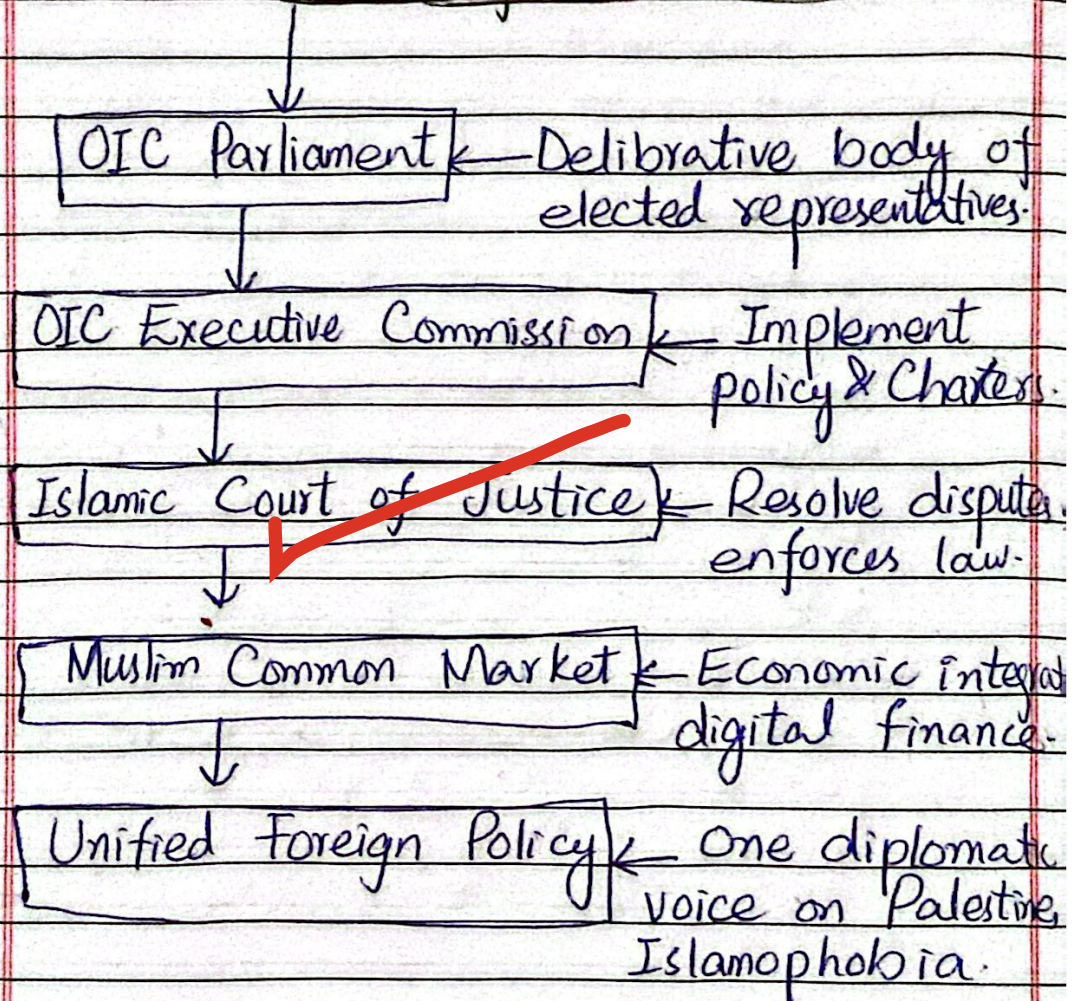 OIC Parliament
Delibrative body of
elected representatives.
OIC Executive Commission
Implement
policy & Charters.
Islamic Court of Justice
Resolve disputes
enforces law.
Muslim Common Market
Economic integrat
digital finance.
Unified Foreign Policy
One diplomatic
voice on Palestine,
Islamophobia.